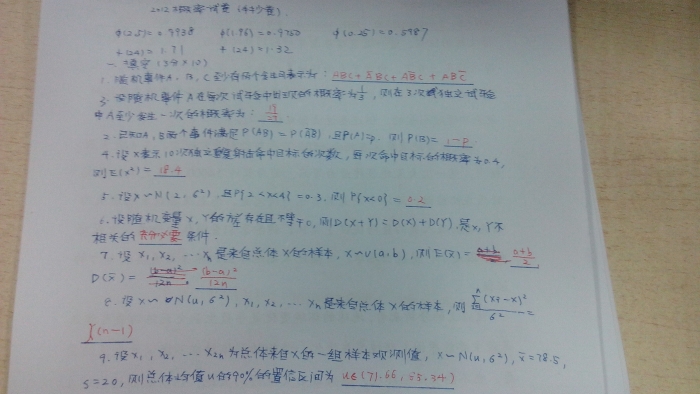 2012概率试卷(
φ(2.5)=0.9938 φ(1.96)=0.9750 φ(0.25)=0.5987
t(24)=1.71 t(24)=1.32
一、填空(3分×10)
1. 随机事件A, B, C至少有两个发生可表示为: ABC+ĀBC+AB̄C+ABC̄
3. 设随机事件A在每次试验中出现的概率为1/3, 则在3次独立试验
中A至少发生一次的概率为: 19/27
2. 已知A, B两个事件满足P(AB)=P(ĀB̄) 且P(A)=p. 则P(B)= 1-p
4. 设X表示10次独立重复射击命中目标的次数, 每次命中目标的概率为0.4,
则E(x²)= 18.4
5. 设X~N(2, 6²) 且P{2<x<4}=0.3, 则P{x<0}= 0.2
6. 设随机变量X, Y的方差存在且不等于0, 则D(X+Y)=D(X)+D(Y) 是X, Y不
相关的 充分必要 条件.
7. 设X₁, X₂, …Xₙ是来自总体X的样本, X~U(a,b), 则E(x̄)= a+b a+b/2
D(x̄)= (b-a)²/12n (b-a)²/12n
设X~N(u, 6²), X₁, X₂, …Xn是来自总体X的样本, 则 Σ(xi-x)²/6² =
(n-1)
9. 设X₁, X₂, …X₂ₙ为总体来自X的一组样本观测值, X~N(u, 6²), x̄=78.5,
S=20, 则总体均值u的90%的置信区间为 u∈(71.66,